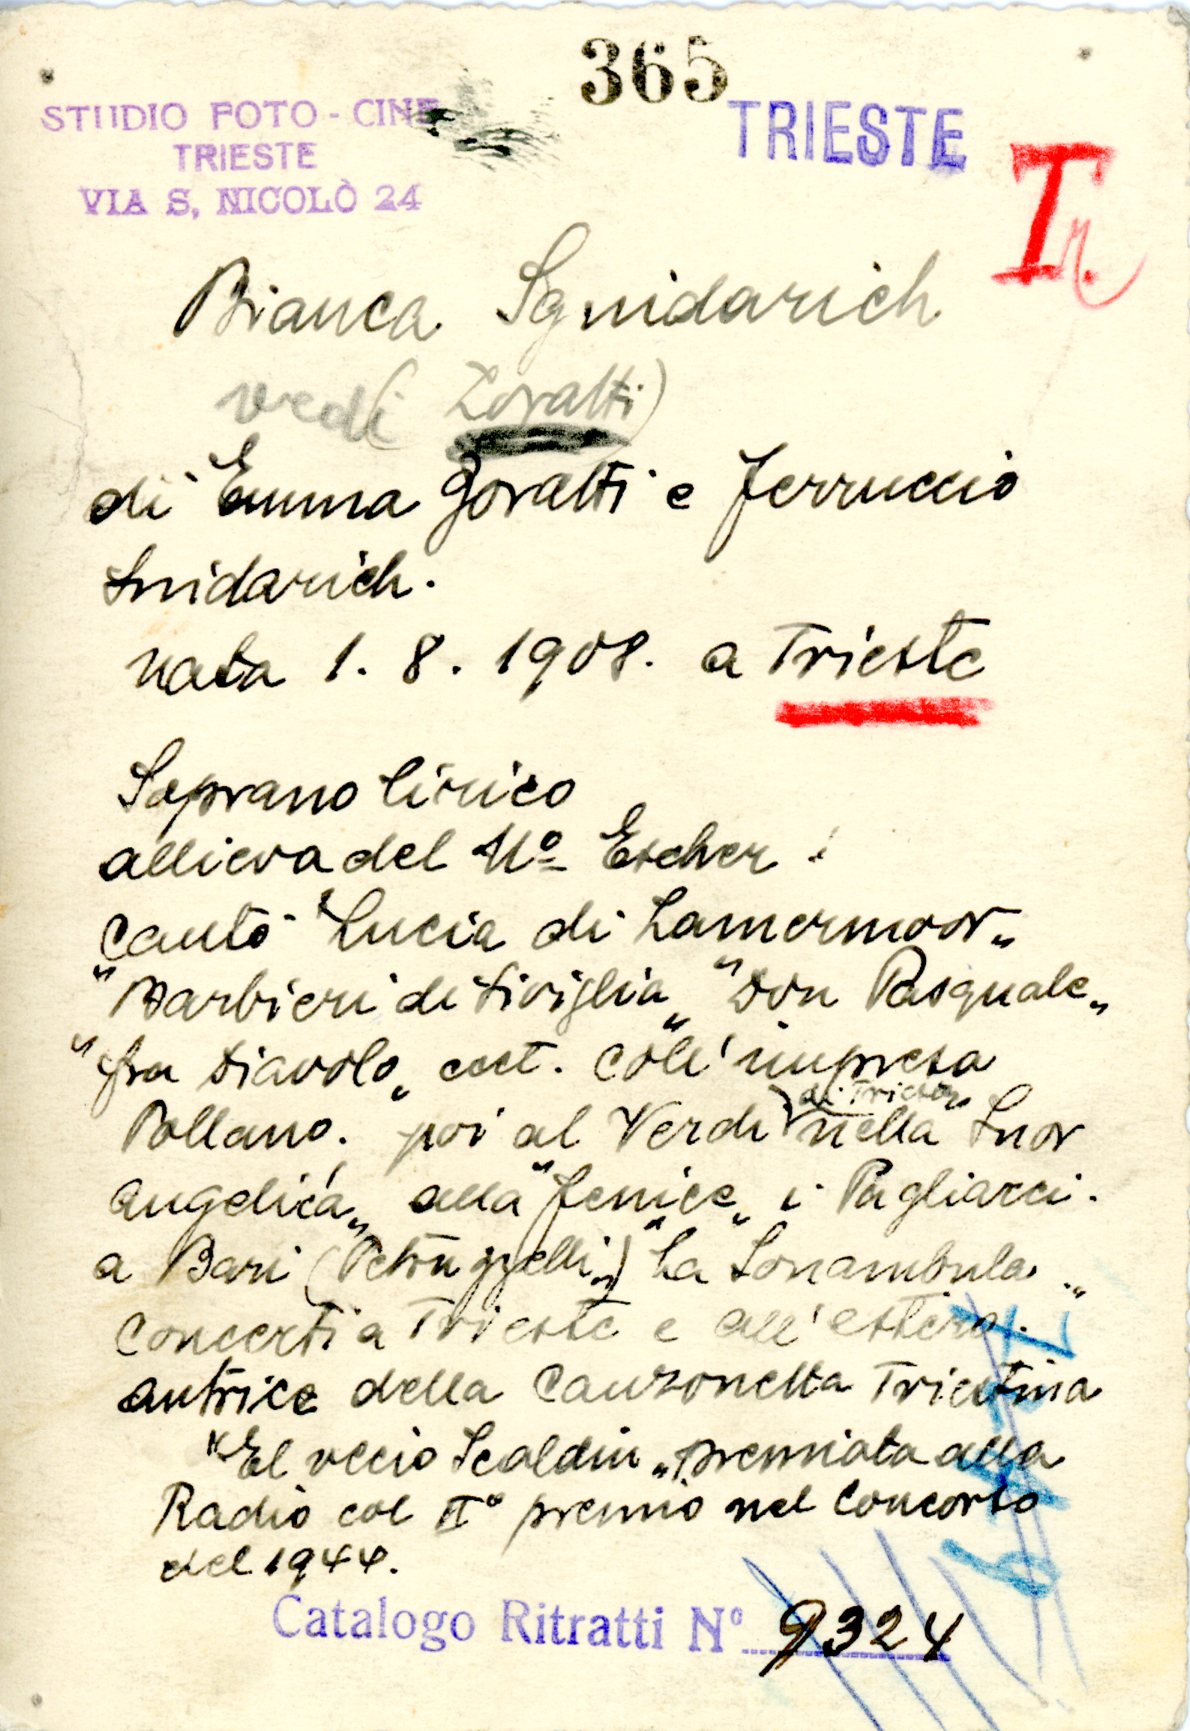 365
STUDIO FOTO - CINE
TRIESTE
VIA S. NICOLÒ 24
TRIESTE
Tr.
Bianca Sgnidarich
vedi (Zoratti)
di Emma Zoratti e Ferruccio
Snidarich.
nata 1. 8. 1908. a Trieste
Soprano lirico
allieva del Mº Escher
cantò "Lucia di Lamermoor„
"Barbieri di Siviglia„ "Don Pasquale„
"fra Diavolo„ ecct. coll' impresa
Bollano. poi al Verdi di Trieste nella Suor
Angelica„ alla "Fenice„ i Pagliacci.
a Bari (Petruzzelli„) "La Sonambula„
Concerti a Trieste e all' estero.
autrice della Canzonetta Triestina
"El vecio Scaldin„ premiata alla
Radio col IIº premio nel Concorso
del 1944.
Catalogo Ritratti Nº 9324